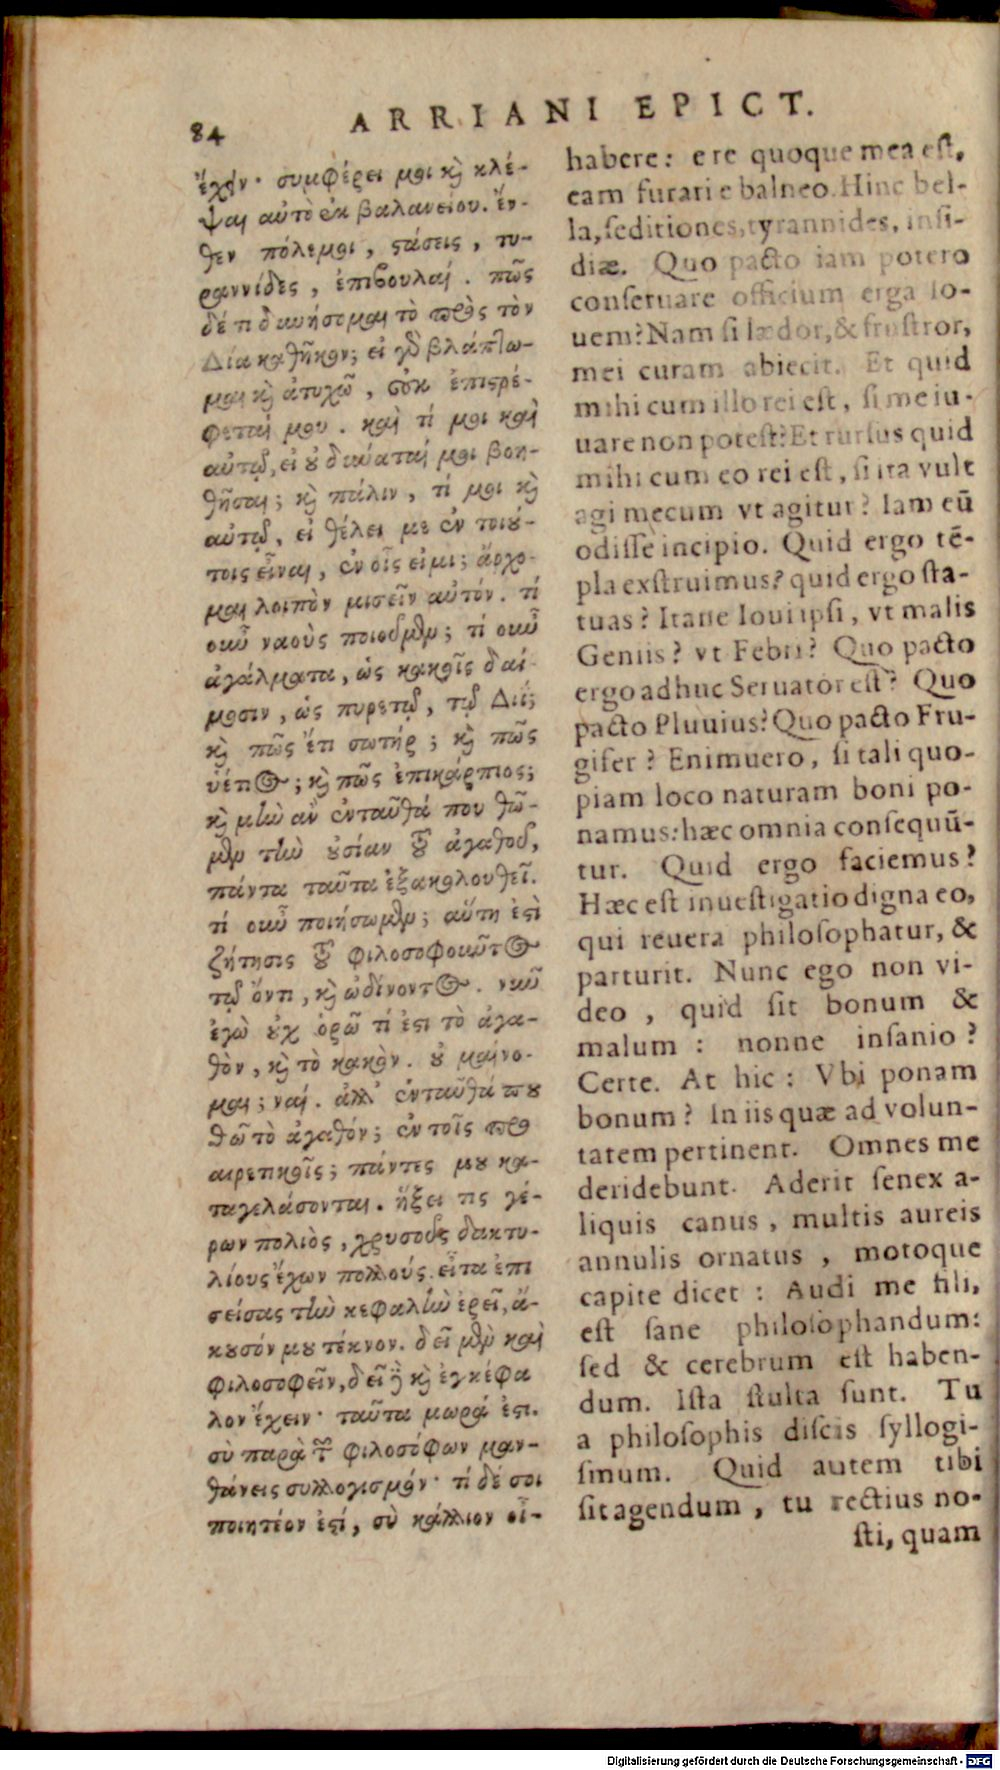 84 ARRIANI EPICT.
ἔχειν· συμφέρει μοι κὶ κλέ-
ψαι αὐτὸ ἐκ βαλανείου. ἔν-
θεν πόλεμοι, στάσεις, τυ-
ραννίδες, ἐπιβουλαί. πῶς
δέ τι δυνήσομαι τὸ πρὸς τὸν
Δία καθῆκον; εἰ γὸ βλάπτω-
μαι κὶ ἀτυχῶ, οὐκ ἐπιστρέ-
φεταί μου. καὶ τί μοι καὶ
αὐτῷ, εἰ ȣ δύναταί μοι βοη-
θῆσαι; κὶ πάλιν, τί μοι κὶ
αὐτῷ, εἰ θέλει με ἐν τοιȣ-
τοις εἶναι, ἐν οἷς εἰμι; ἄρχο-
μαι λοιπὸν μισεῖν αὐτόν. τί
οὖν ναοὺς ποιοῦμεν; τί οὖν
ἀγάλματα, ὡς κακοῖς δαί-
μοσιν, ὡς πυρετῷ, τῷ Διί;
κὶ πῶς ἔτι σωτήρ; κὶ πῶς
ὑέτιος; κὶ πῶς ἐπικάρπιος;
κὶ μὴν ἂν ἐνταῦθά που θῶ-
μεν τὴν ȣσίαν τȣ ἀγαθοῦ,
πάντα ταῦτα ἐξακολουθεῖ.
τί οὖν ποιήσωμεν; αὕτη ἐστὶ
ζήτησις τȣ φιλοσοφοῦντος
τῷ ὄντι, κὶ ὠδίνοντος. νῦν
ἐγὼ ȣχ ὁρῶ τί ἐστι τὸ ἀγα-
θὸν, κὶ τὸ κακὸν. ȣ μαίνο-
μαι; ναί. ἀλλ' ἐνταῦθά πȣ
θῶ τὸ ἀγαθόν; ἐν τοῖς προ
αιρετικοῖς; πάντες μȣ κα-
ταγελάσονται. ἥξει τις γέ-
ρων πολιὸς, χρυσοῦς δακτυ-
λίους ἔχων πολλούς. εἶτα ἐπι
σείσας τὴν κεφαλὴν ἐρεῖ, ἄ-
κȣσόν μȣ τέκνον. δεῖ μὲν καὶ
φιλοσοφεῖν, δεῖ δὲ κὶ ἐγκέφα
λον ἔχειν· ταῦτα μωρά ἐστι.
σὺ παρὰ τῶν φιλοσόφων μαν-
θάνεις συλλογισμόν· τί δέ σοι
ποιητέον ἐστί, σὺ κάλλιον οἶ-
habere: e re quoque mea est,
eam furari e balneo. Hinc bel-
la, seditiones, tyrannides, insi-
diæ. Quo pacto iam potero
conseruare officium erga Io-
uem? Nam si lædor, & frustror,
mei curam abiecit. Et quid
mihi cum illo rei est, si me iu-
uare non potest? Et rursus quid
mihi cum eo rei est, si ita vult
agi mecum vt agitur? Iam eū
odisse incipio. Quid ergo tē-
pla exstruimus? quid ergo sta-
tuas? Itane Ioui ipsi, vt malis
Geniis? vt Febri? Quo pacto
ergo adhuc Seruator est? Quo
pacto Pluuius? Quo pacto Fru-
gifer? Enimuero, si tali quo-
piam loco naturam boni po-
namus: hæc omnia consequū-
tur. Quid ergo faciemus?
Hæc est inuestigatio digna eo,
qui reuera philosophatur, &
parturit. Nunc ego non vi-
deo, quid sit bonum &
malum: nonne insanio?
Certe. At hic: Vbi ponam
bonum? In iis quæ ad volun-
tatem pertinent. Omnes me
deridebunt. Aderit senex a-
liquis canus, multis aureis
annulis ornatus, motoque
capite dicet: Audi me fili,
est sane philosophandum:
sed & cerebrum est haben-
dum. Ista stulta sunt. Tu
a philosophis discis syllogi-
smum. Quid autem tibi
sit agendum, tu rectius no-
sti, quam
Digitalisierung gefördert durch die Deutsche Forschungsgemeinschaft - DFG